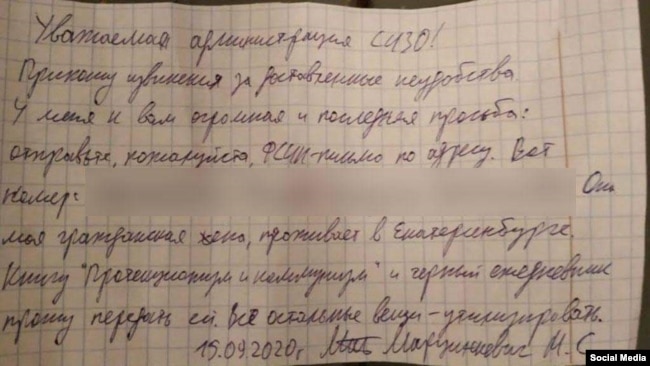 Уважаемая администрация СИЗО!
Приношу извинения за доставленные неудобства.
У меня к вам огромная и последняя просьба:
отправьте, пожалуйста, ФСИН-письмо по адресу. Вот
номер: Она
моя гражданская жена, проживает в Екатеринбурге.
Книгу "Протекционизм и коммунизм" и черный ежедневник
прошу передать ей. Все остальные вещи - утилизировать.
15.09.2020г Марцинкевич М.С
Social Media